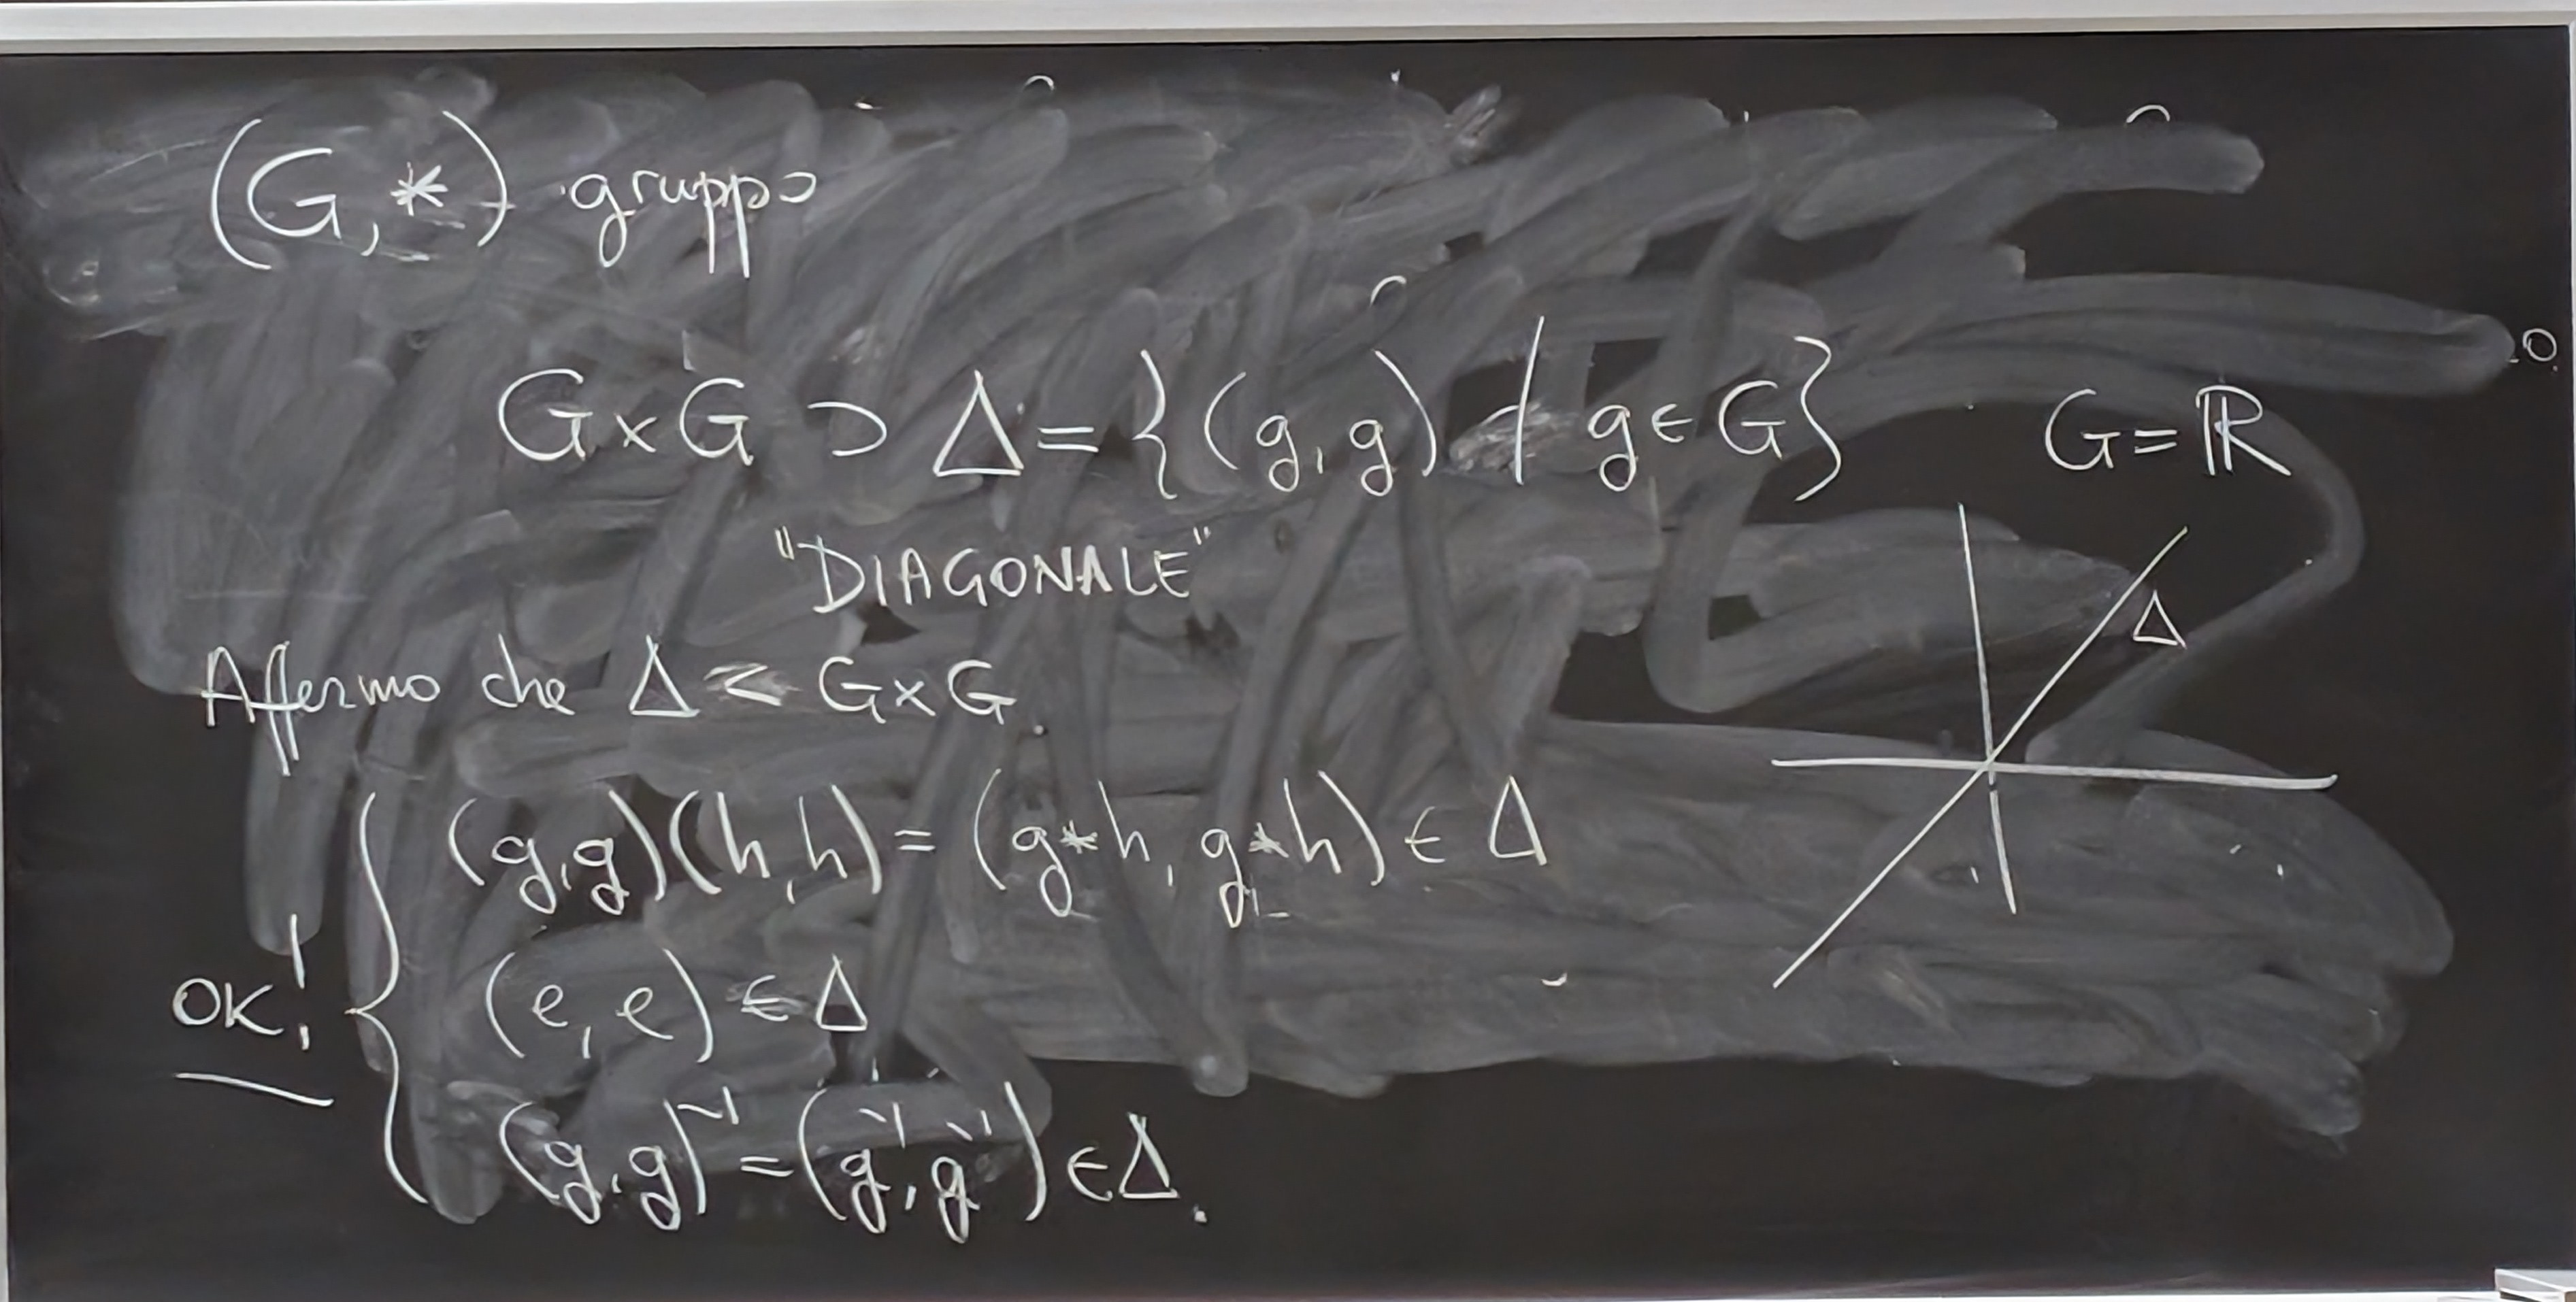 (G, *) gruppo
G×G ⊃ Δ = {(g, g) / g ∈ G}
G = ℝ
"DIAGONALE"
Δ
Affermo che Δ < G×G.
(g, g)(h, h) = (g*h, g*h) ∈ Δ
OK! { (e, e) ∈ Δ
(g, g)⁻¹ = (g⁻¹, g⁻¹) ∈ Δ.